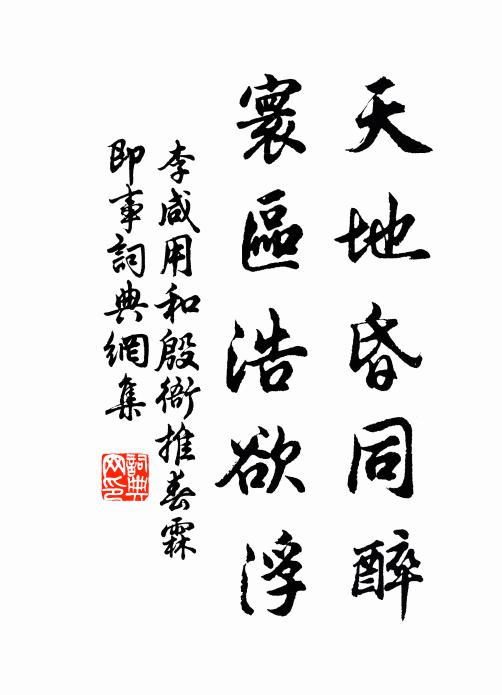 天地昏同醉
寰區浩欲浮
李咸用和殷衙推春霖
即事詞典網集
詞典
网印